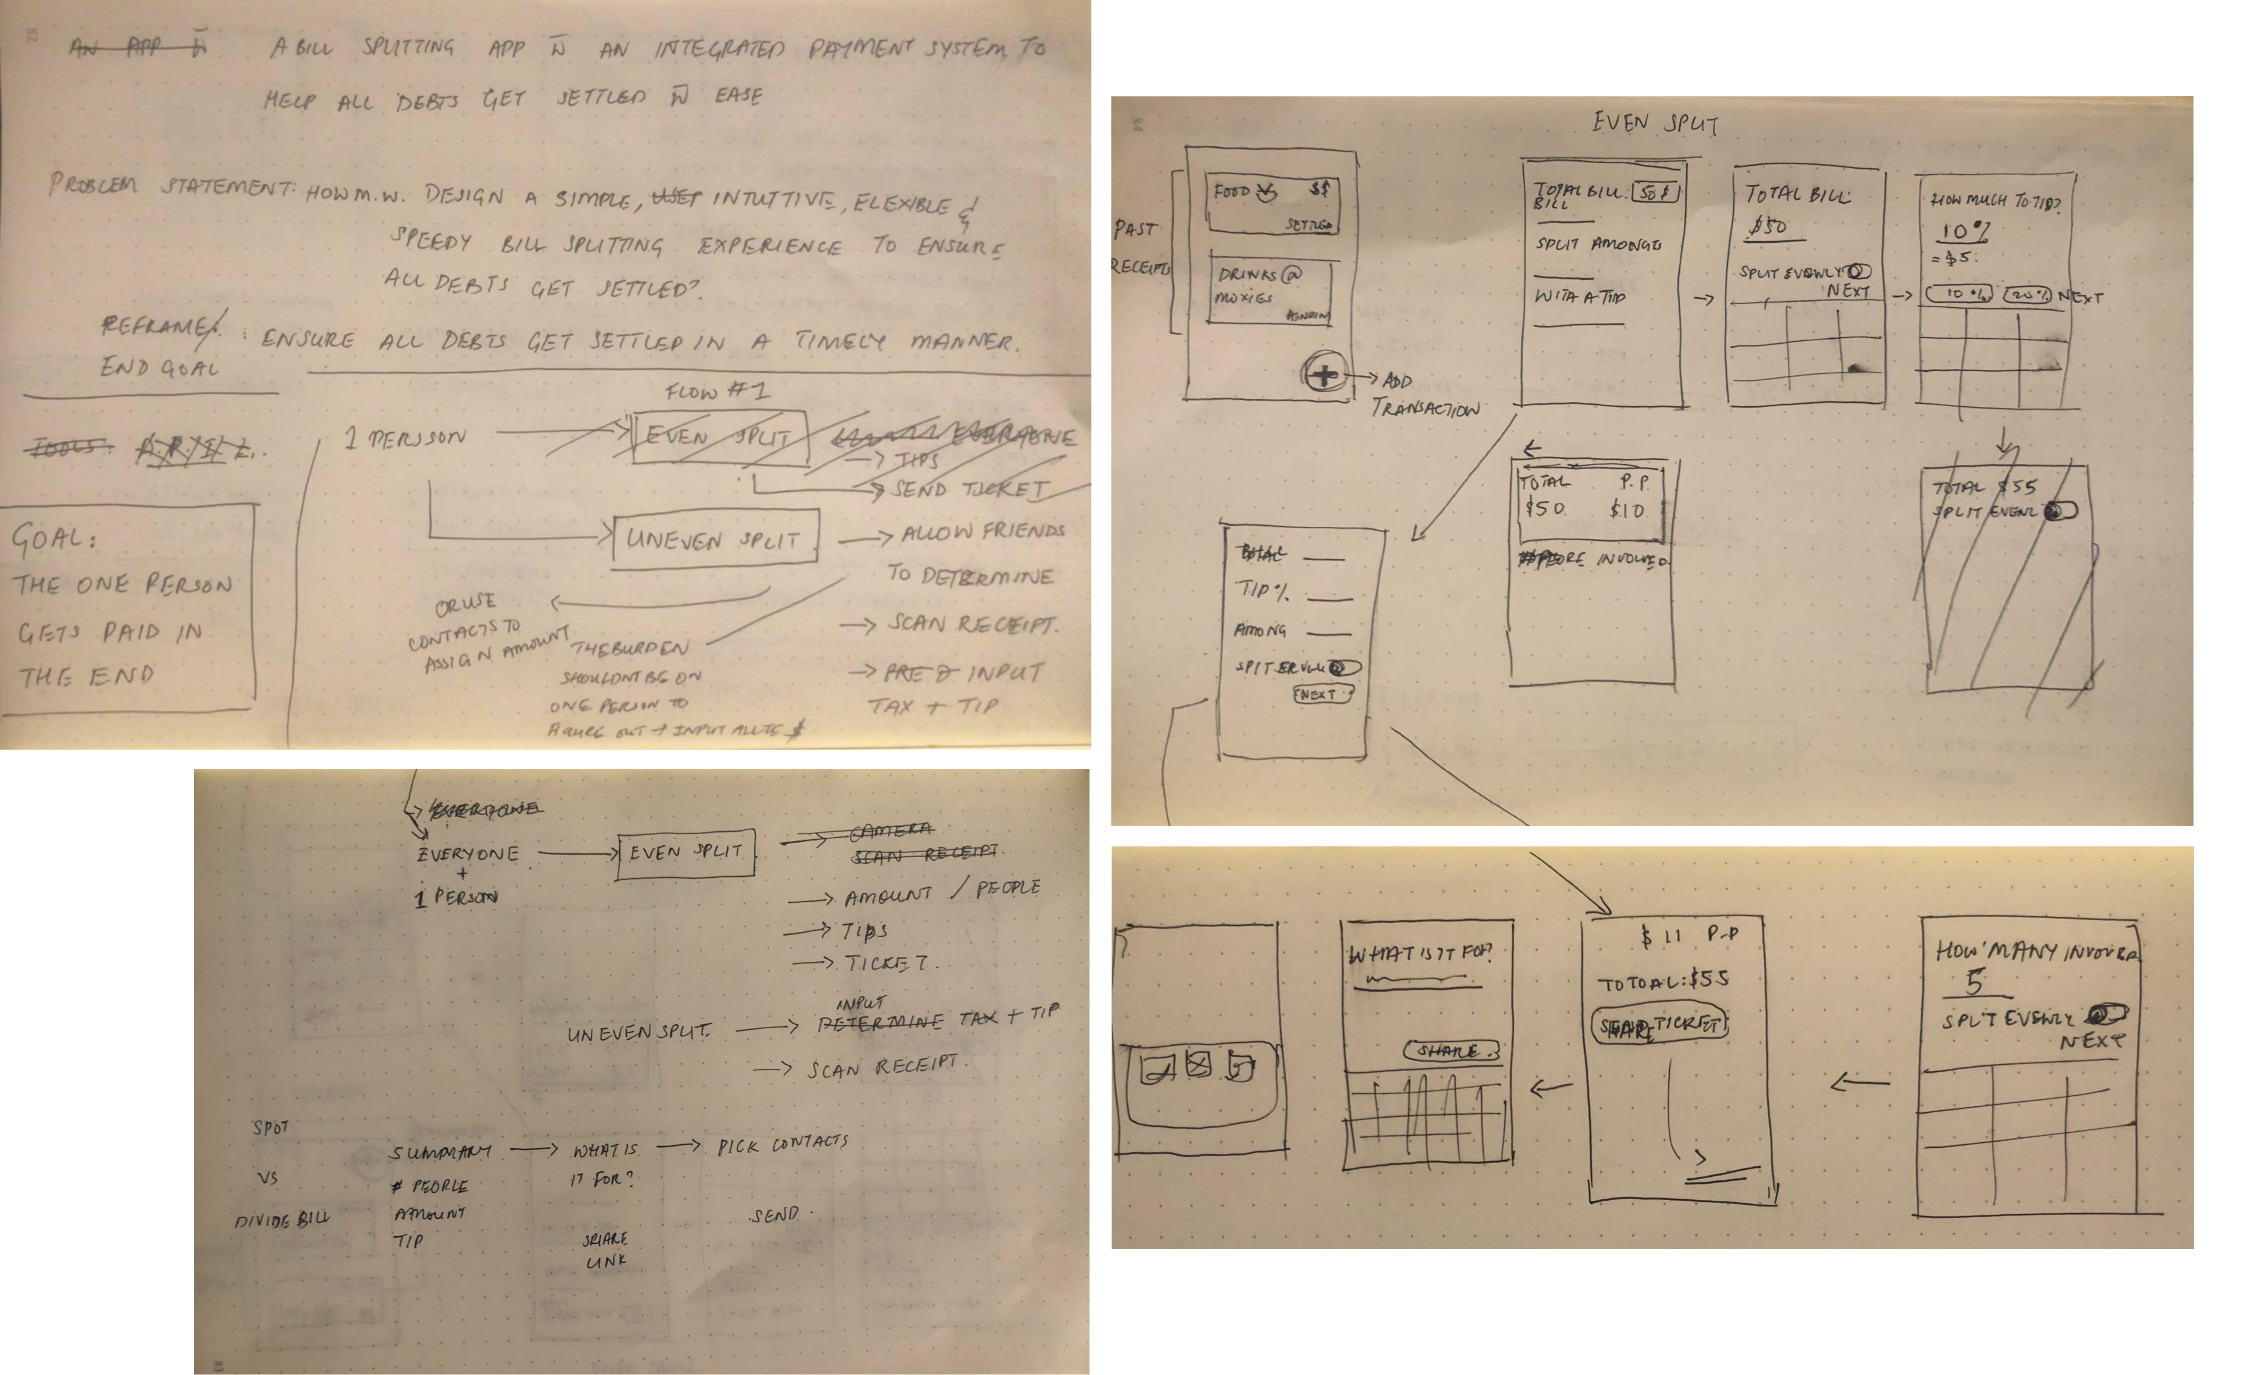 AN APP W̄ A BILL SPLITTING APP W̄ AN INTEGRATED PAYMENT SYSTEM TO
HELP ALL DEBTS GET SETTLED W̄ EASE
PROBLEM STATEMENT: HOW M.W. DESIGN A SIMPLE, USER INTUTTIVE, FLEXIBLE &
SPEEDY BILL SPLITTING EXPERIENCE TO ENSURE
ALL DEBTS GET SETTLED?
REFRAME/ : ENSURE ALL DEBTS GET SETTLED IN A TIMELY MANNER.
END GOAL
FLOW #1
TOOLS:
GOAL:
THE ONE PERSON
GETS PAID IN
THE END
1 PERSON
EVEN SPLIT EVERYONE
→ TIPS
→ SEND TICKET
UNEVEN SPLIT → ALLOW FRIENDS
TO DETERMINE
→ SCAN RECEIPT.
→ PRE INPUT
TAX + TIP
OR USE
CONTACTS TO
ASSIGN AMOUNT
THE BURDEN
SHOULDNT BE ON
ONE PERSON TO
FIGURE OUT + INPUT $
EVEN SPLIT
PAST
RECEIPTS
FOOD $$
SETTLED
DRINKS @
MOXIES
+ → ADD
TRANSACTION
TOTAL BILL: 50 $
BILL
SPLIT AMONGTS
WITH A TIP
TOTAL BILL:
$50
SPLIT EVENLY
NEXT
HOW MUCH TO TIP?
10%
= $5.
10% 20% NEXT
TOTAL P.P.
$50 $10
INVOLVED
TOTAL $55
SPLIT EVENL
TIP %
AMONG
NEXT
EVERYONE
EVERYONE → EVEN SPLIT → CAMERA
SCAN RECEIPT
+
1 PERSON
→ AMOUNT / PEOPLE
→ TIPS
→ TICKET.
INPUT
UNEVEN SPLIT. → DETERMINE TAX + TIP
→ SCAN RECEIPT.
SPOT
VS
DIVIDE BILL
SUMMARY → WHAT IS → PICK CONTACTS
# PEOPLE IT FOR?
AMOUNT SEND.
TIP SHARE
LINK
WHAT IS IT FOR?
SHARE
$ 11 P.P
TOTOAL: $55
SEND TICKET
SHARE
HOW MANY
5
SPLIT EVENLY
NEXT